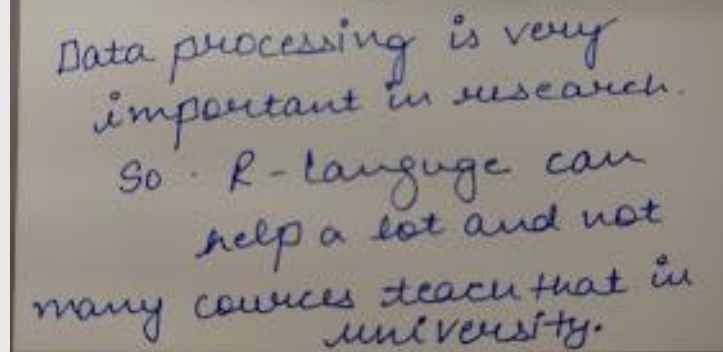 Data processing is very
important in research.
So. R-languge can
help a lot and not
many cources teach that in
university.